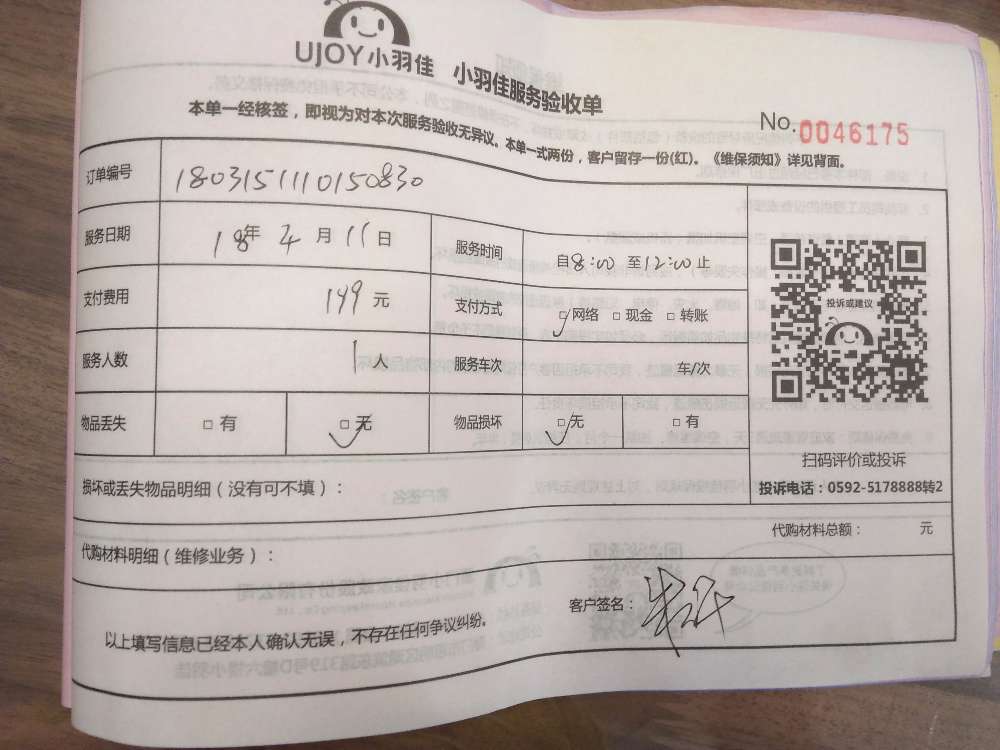 UJOY小羽佳 小羽佳服务验收单
本单一经核签，即视为对本次服务验收无异议。本单一式两份，客户留存一份(红)。《维保须知》详见背面。
No.0046175
订单编号 1803151110150830
服务日期 18年 4月 11日 服务时间 自8:00 至12:00止
支付费用 199元 支付方式 ☑网络 □现金 □转账
服务人数 1人 服务车次 车/次
物品丢失 □有 ☑无 物品损坏 ☑无 □有
投诉或建议
扫码评价或投诉
投诉电话：0592-5178888转2
损坏或丢失物品明细（没有可不填）：
代购材料明细（维修业务）： 代购材料总额： 元
以上填写信息已经本人确认无误，不存在任何争议纠纷。 客户签名：